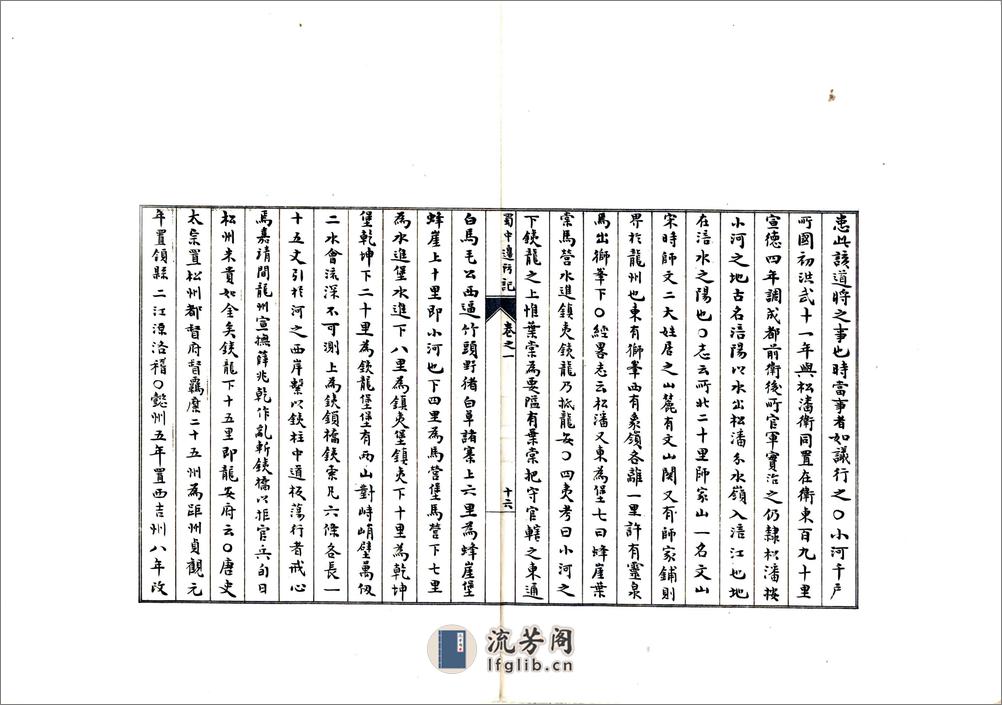 患此該道將之事也時當事者如議行之〇小河千戶
所國初洪武十一年與松潘衛同置在衛東百九十里
宣德四年調成都前衛後所官軍實治之仍隸松潘按
小河之地古名涪陽以水出松潘分水嶺入涪江也地
在涪水之陽也〇志云所北二十里師家山一名文山
宋時師文二大姓居之山麓有文山関又有師家鋪則
界於龍州也東有獅峯西有象嶺各離一里許有靈泉
焉出獅峯下〇經畧志云松潘又東為堡七曰蜂崖葉
棠馬營水進鎮夷鉄龍乃抵龍安〇四夷考曰小河之
下鉄龍之上惟葉棠為要隘有葉棠把守官轄之東通
蜀中邊防記 卷之一 十六
白馬毛公西逼竹頭野猪白草諸寨上六里為蜂崖堡
蜂崖上十里即小河也下四里為馬營堡馬營下七里
為水進堡水進下八里為鎮夷堡鎮夷下十里為乾坤
堡乾坤下二十里為鉄龍堡堡有両山對峙峭壁萬仭
二水會流深不可測上為鉄鎖橋鉄索凡六條各長一
十五丈引於河之西岸繫以鉄柱中道板蕩行者戒心
焉嘉靖間龍州宣撫薛兆乾作亂斬鉄橋以拒官兵旬日
松州米貴如金矣鉄龍下十五里即龍安府云〇唐史
太宗置松州都督府督羈縻二十五州為距州貞觀元
年置領縣二江源洛稽〇懿州五年置西吉州八年改
流芳阁
lfglib.cn